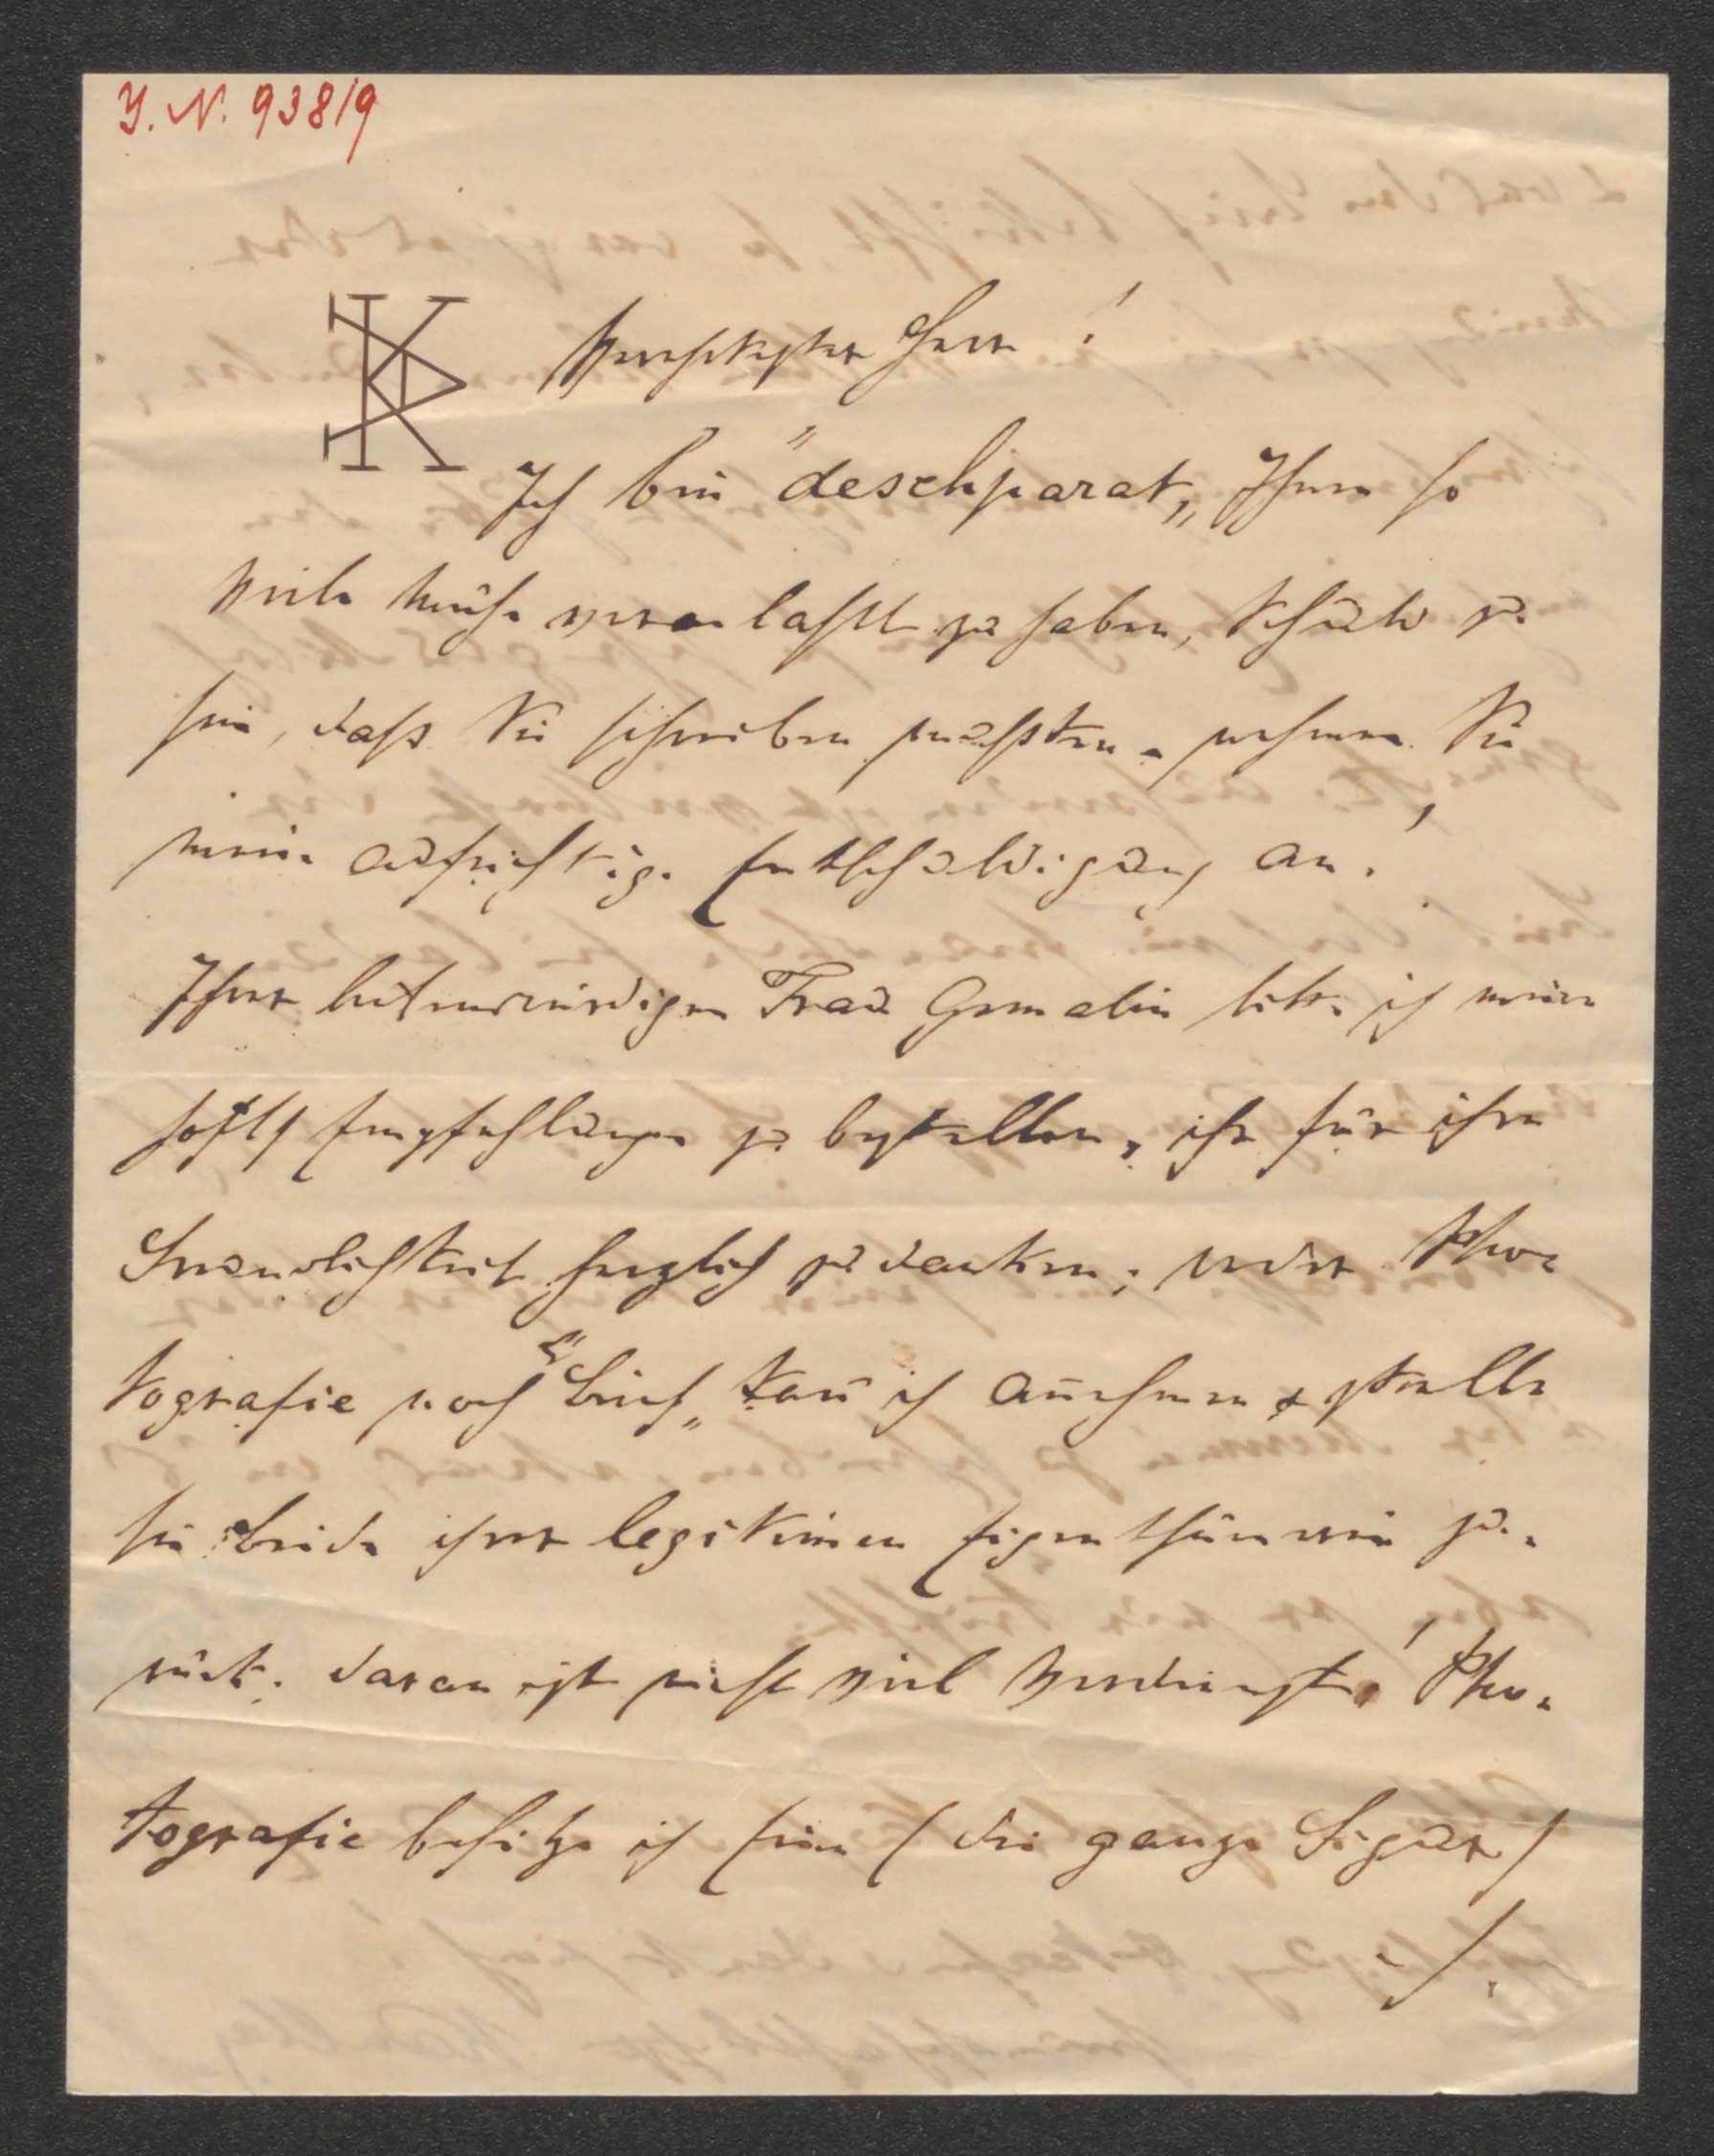 J. N. 93819
KP
Verehrtester Herr!
Ich bin "deschparat„ Ihnen so
viele Mühe veranlaßt zu haben, Schuld zu
sein, daß Sie schreiben mußten - nehmen Sie
meine aufrichtige Entschuldigung an!
Ihrer liebenswürdigen Frau Gemalin bitte ich meine
höfl Empfehlungen zu bestellen, ihr für ihre
Freundlichkeit herzlich zu danken; weder Pho-
tografie noch "Brief„ kan̅ ich an̅ehmen & stelle
sie beide ihrer legitimen Eigenthümerin zu-
rück. Daran ist nicht viel Verdienst! Pho-
tografie besitze ich eine (die ganze Figur)
./.